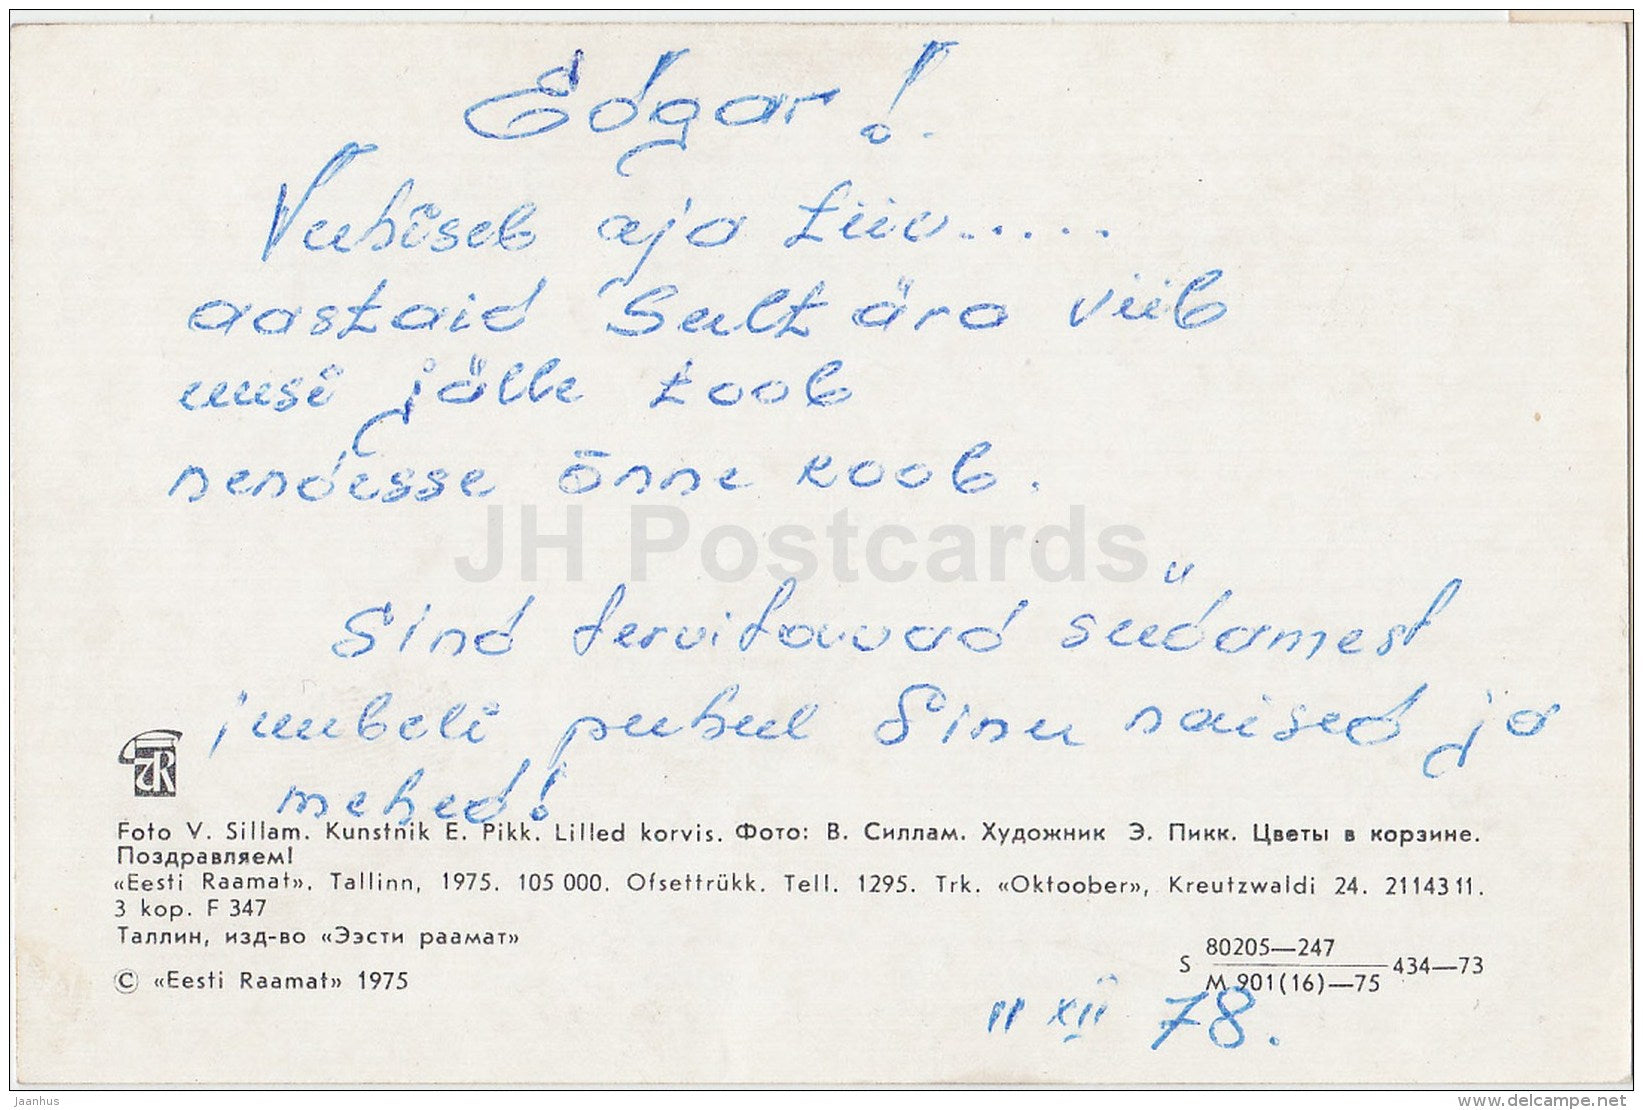 Edgar!
Vuhiseb aja tiiv.....
aastaid Sult ära viib
uusi jälle toob
nendesse õnne koob.
JH Postcards
Sind tervitavad südamest
juubeli puhul Sinu naised ja
mehed!
Foto V. Sillam. Kunstnik E. Pikk. Lilled korvis. Фото: В. Силлам. Художник Э. Пикк. Цветы в корзине.
Поздравляем!
«Eesti Raamat». Tallinn, 1975. 105 000. Ofsettrükk. Tell. 1295. Trk. «Oktoober», Kreutzwaldi 24. 2114311.
3 kop. F 347
Таллин, изд-во «Ээсти раамат»
S 80205—247
М 901(16)—75 434—73
© «Eesti Raamat» 1975
11 XII 78.
Jaanhus
www.delcampe.net